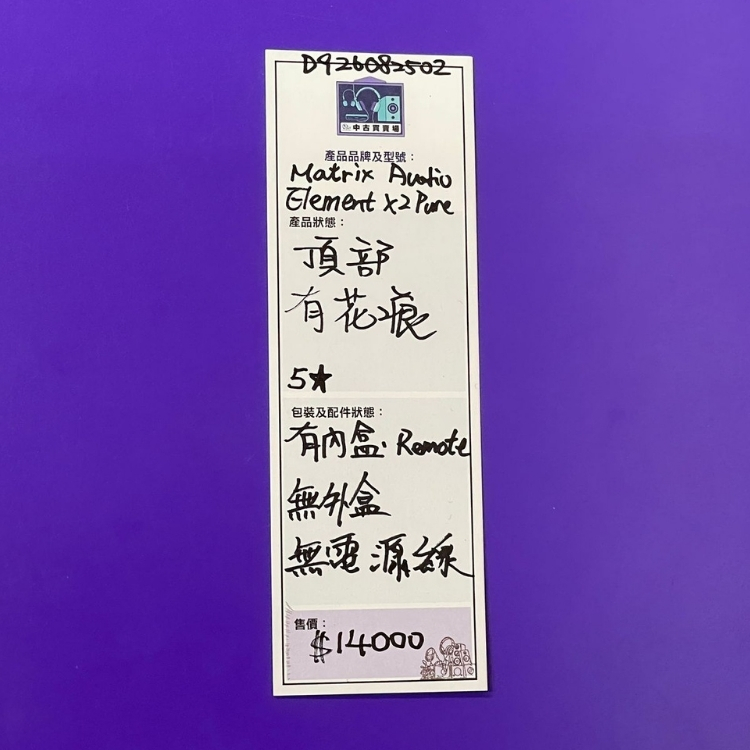 D926082502
中古買賣場
產品品牌及型號：
Matrix Audio
Element X2 Pure
產品狀態：
頂部
有花痕
5★
包裝及配件狀態：
有內盒. Remote
無外盒
無電源線
售價：
$14000